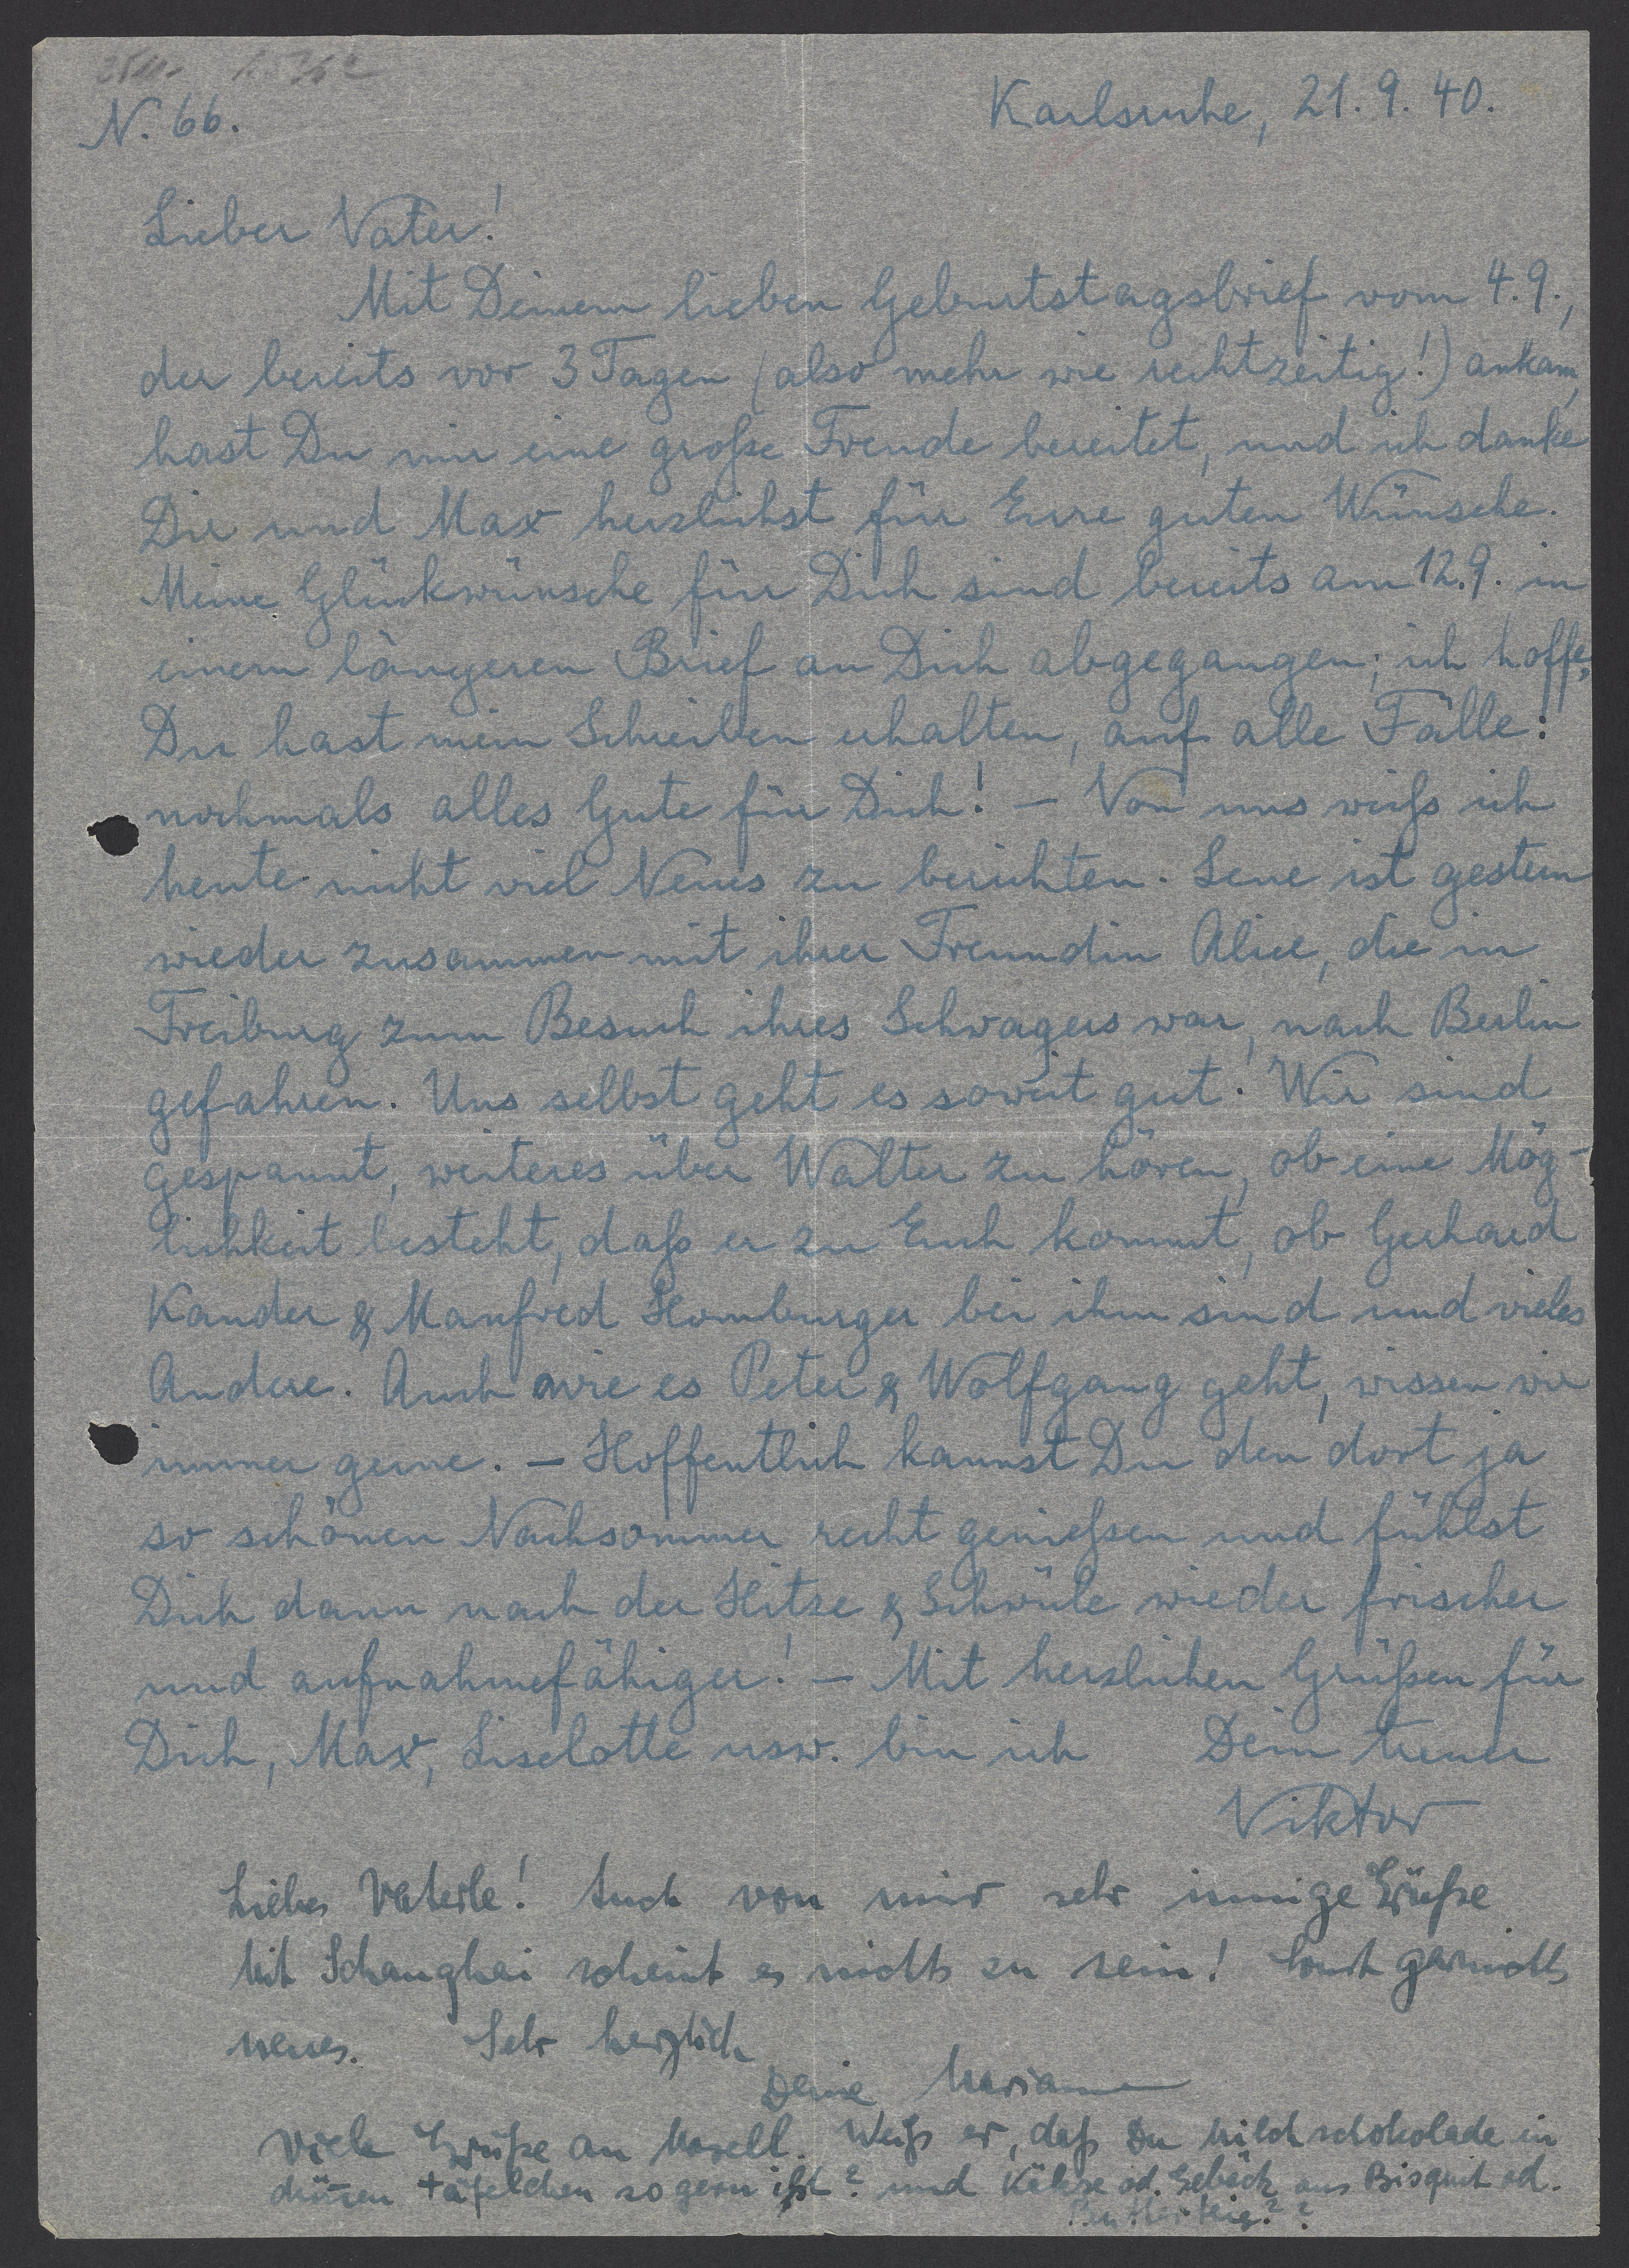 N. 66.
Karlsruhe, 21. 9. 40.
Lieber Vater!
Mit Deinem lieben Geburtstagsbrief vom 4. 9.,
der bereits vor 3 Tagen (also mehr wie rechtzeitig!) ankam,
hast Du mir eine große Freude bereitet, und ich danke
Dir und Max herzlichst für Eure guten Wünsche.
Meine Glückwünsche für Dich sind bereits am 12. 9. in
einem längeren Brief an Dich abgegangen; ich hoffe,
Du hast mein Schreiben erhalten, auf alle Fälle:
nochmals alles Gute für Dich! – Von uns weiß ich
heute nicht viel Neues zu berichten. Lene ist gestern
wieder zusammen mit ihrer Freundin Alice, die in
Freiburg zum Besuch ihres Schwagers war, nach Berlin
gefahren. Uns selbst geht es soweit gut. Wir sind
gespannt, weiteres über Walter zu hören, ob eine Mög-
lichkeit besteht, daß er zu Euch kommt, ob Gerhard
Kander & Manfred Homburger bei ihm sind und vieles
Andere. Auch wie es Peter & Wolfgang geht, wissen wir
immer gerne. – Hoffentlich kannst Du den dort ja
so schönen Nachsommer recht genießen und fühlst
Dich dann nach der Hitze & Schwüle wieder frischer
und aufnahmefähiger! – Mit herzlichen Grüßen für
Dich, Max, Liselotte usw. bin ich Dein treuer
Viktor
Liebes Vaterle! Auch von mir sehr innige Grüße
Mit Schanghai scheint es nichts zu sein! Sonst garnichts
neues. Sehr herzlich
Deine Marianne
Viele Grüße an Maxell. Weiß er, daß Du Milchschokolade in
dünnen täfelchen so gern ißt? und Kekse od. Gebäck aus Bisquit od.